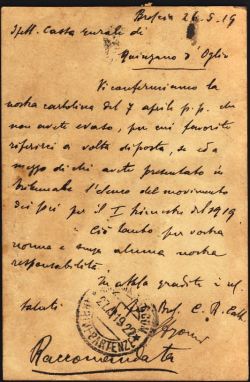 Brescia 26.5.19
Spett. Cassa rurale di
Quinzano d'Oglio
Vi confermiamo la
nostra cartolina del 7 aprile p.p. che
non avete evaso, per cui favorite
riferirci a volta di posta, se ed a
mezzo di chi avete presentato in
tribunale l'elenco del movimento
dei soci per il I trimestre del 1919.
Ciò tanto per vostra
norma e senza alcuna nostra
responsabilità.
In attesa gradite i ns.
saluti
PARTENZE
Raccomandata